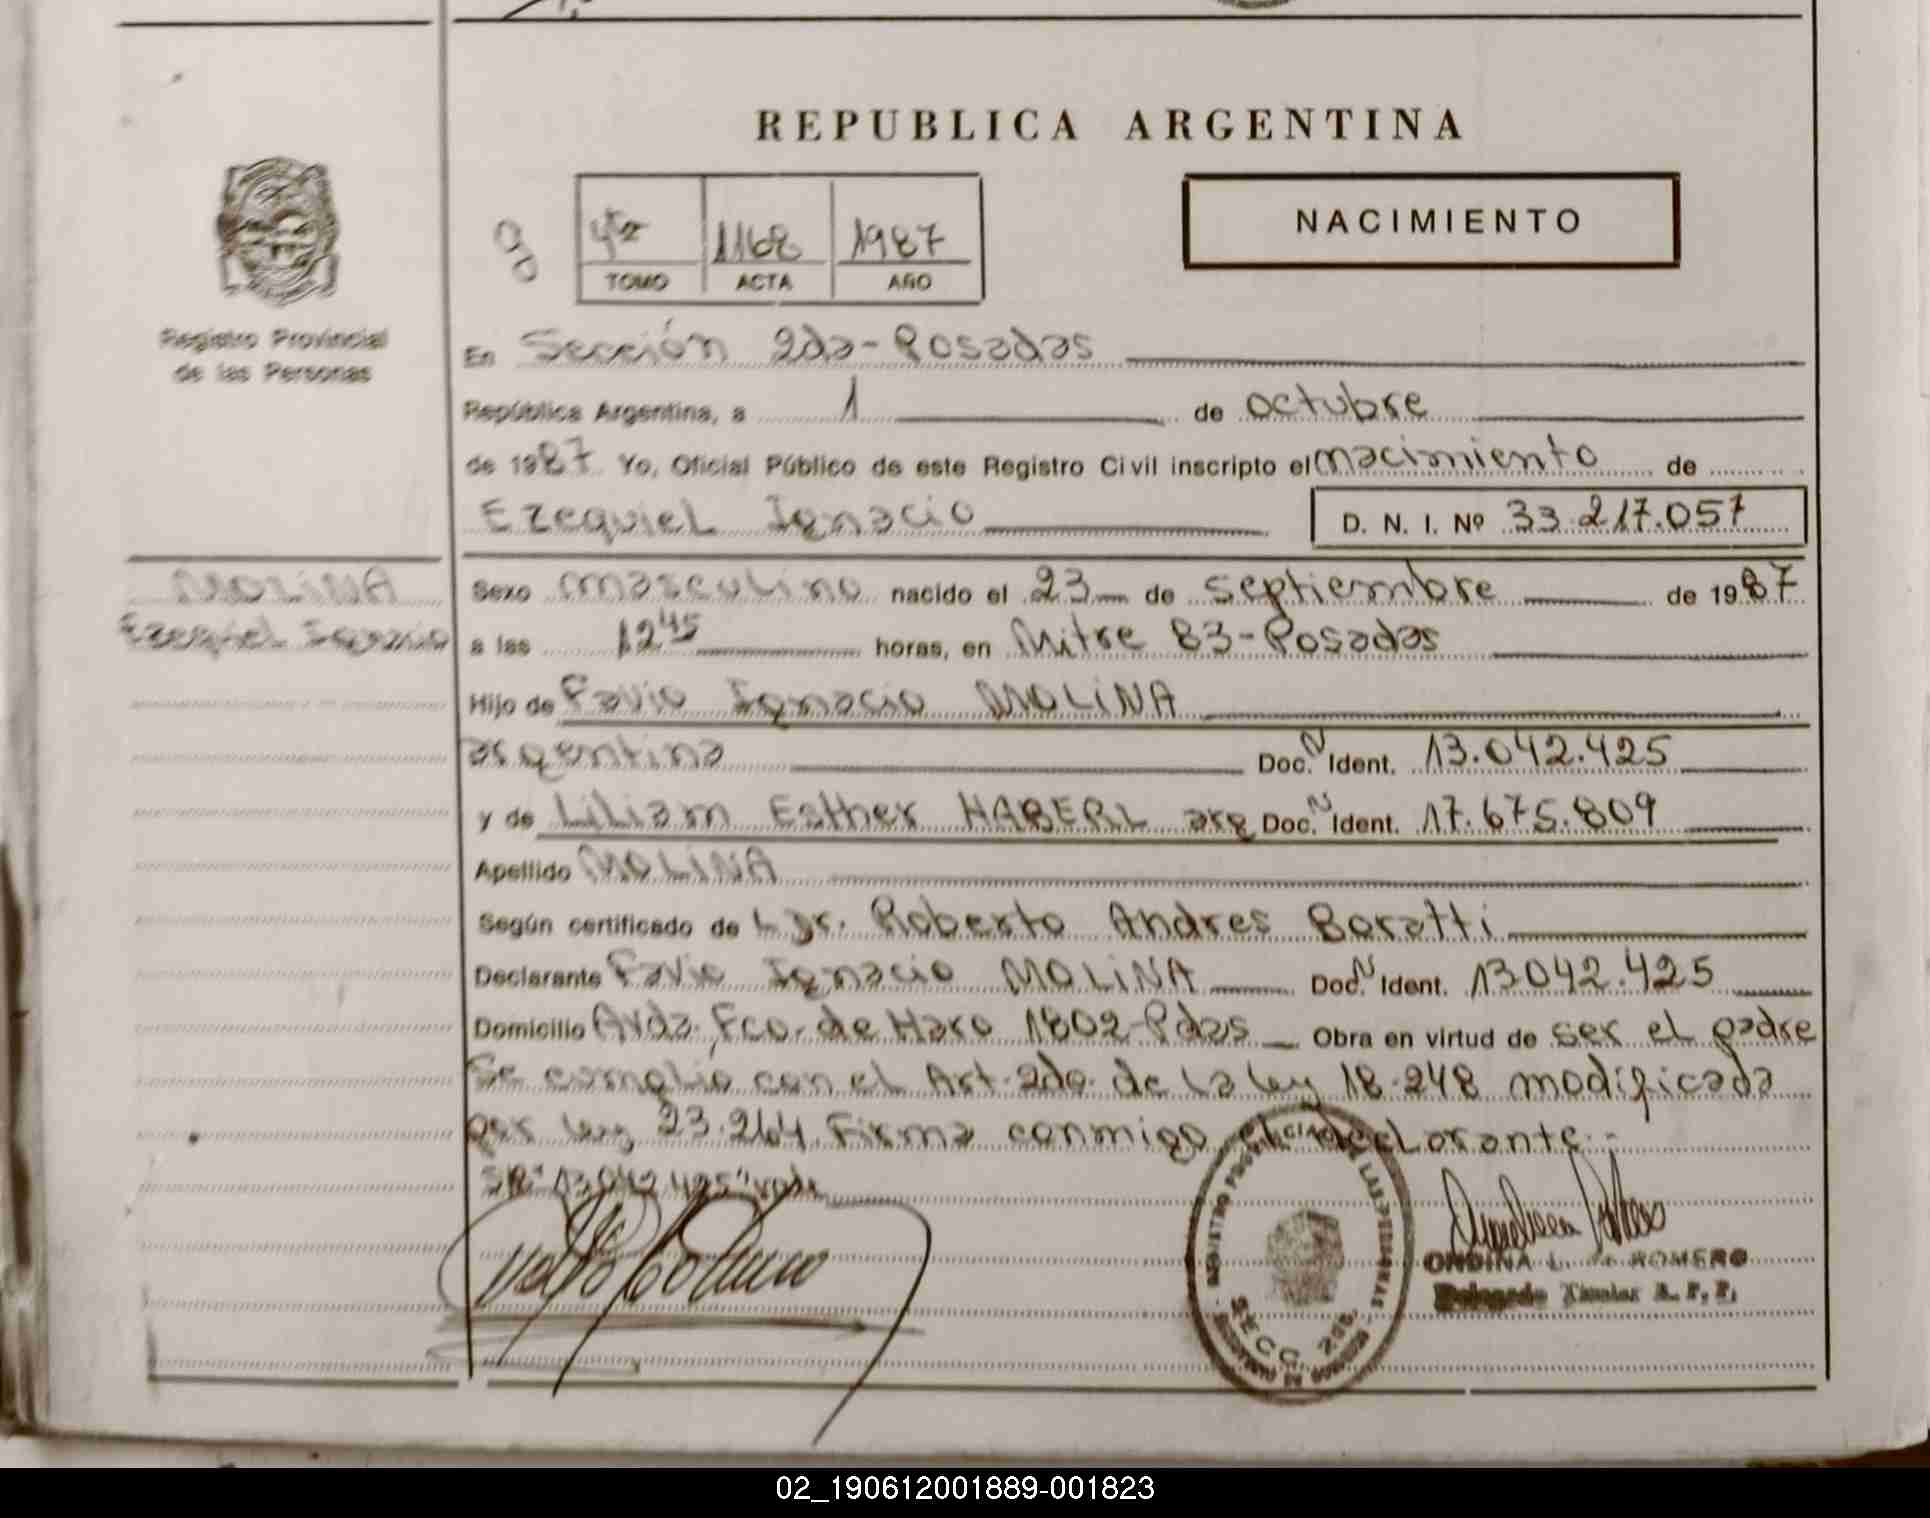 REPUBLICA ARGENTINA
NACIMIENTO
1168 1987
TOMO ACTA AÑO
Registro Provincial
de las Personas
En Sección 2da-Posadas
República Argentina, a 1 de octubre
de 1987 Yo, Oficial Público de este Registro Civil inscripto el nacimiento de
Ezequiel Ignacio D. N. I. Nº 33.217.057
MOLINA
Ezequiel Ignacio
Sexo masculino nacido el 23 de septiembre de 1987
a las 12 45 horas, en Mitre 83-Posadas
Hijo de Favio Ignacio MOLINA
argentina Doc. N Ident. 13.042.425
y de Liliam Esther HABERL arg Doc. N Ident. 17.675.809
Apellido MOLINA
Según certificado de Dr. Roberto Andres Boratti
Declarante Favio Ignacio MOLINA Doc. N Ident. 13042.425
Domicilio Avda. Fco. de Haro 1802-Pdas Obra en virtud de ser el padre
Se cumplio con el Art. 2do. de la ley 18.248 modificada
por ley 23.264 Firma conmigo el declarante.-
13042425 vale
REGISTRO PROVINCIAL DE LAS PERSONAS
SECC. 2da.
ONDINA L. de ROMERO
Delegado Titular
02_190612001889-001823